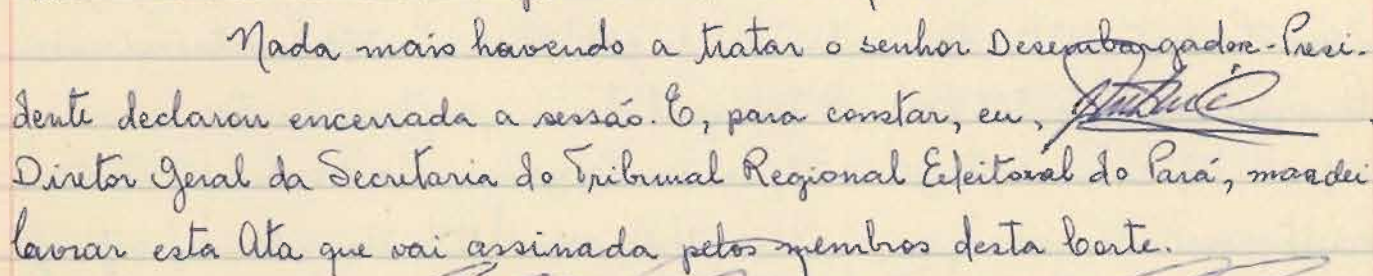 Nada mais havendo a tratar o senhor Desembargador-Presi-
dente declarou encerrada a sessão. E, para constar, eu,
Diretor Geral da Secretaria do Tribunal Regional Eleitoral do Pará, mandei
lavrar esta Ata que vai assinada pelos membros desta Corte.